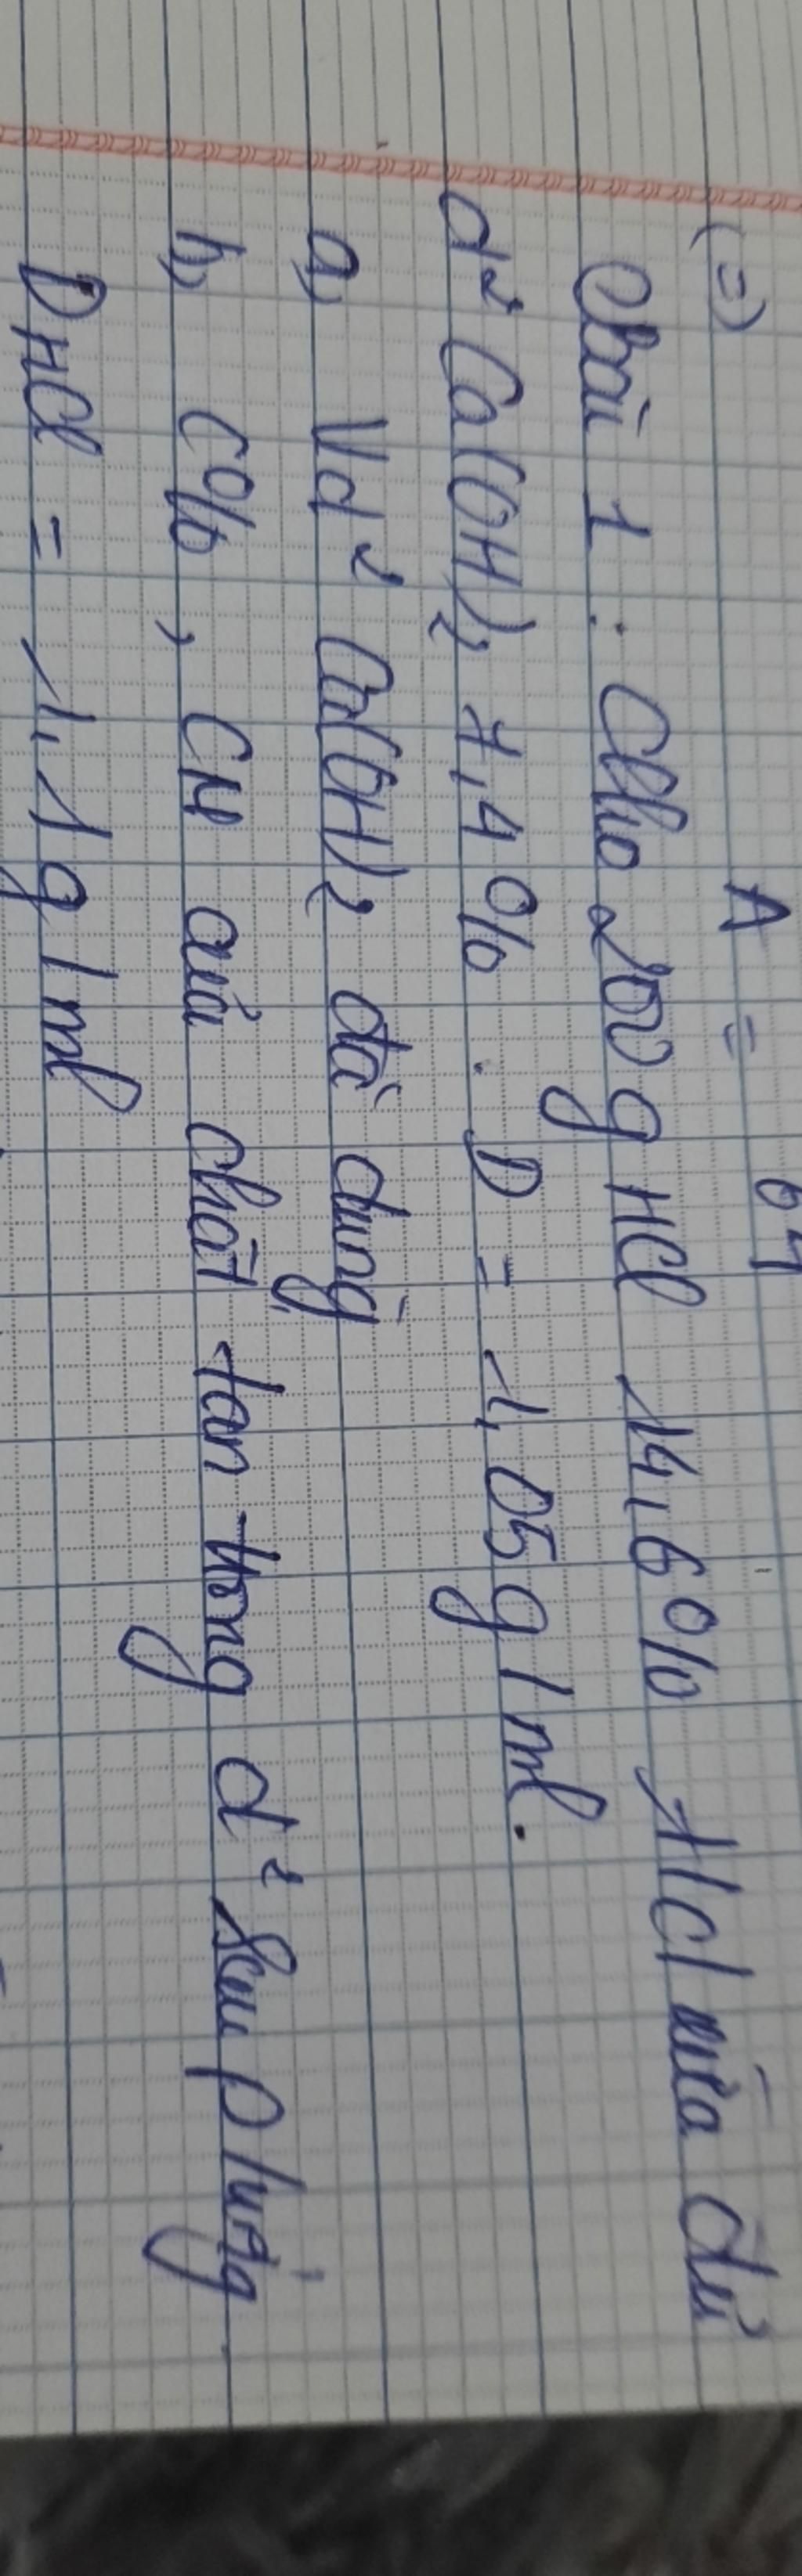 (=) A = 64
Bài 1 : Cho 200 g HCl 14,6% T/d vừa đủ
d² Ca(OH)₂ 7,4% . D = 1,05 g/ml.
a, Vd² Ca(OH)₂ đã dùng
b, C%, CM của chất tan trong d² sau phứng
DHCl = 1,1 g/ml